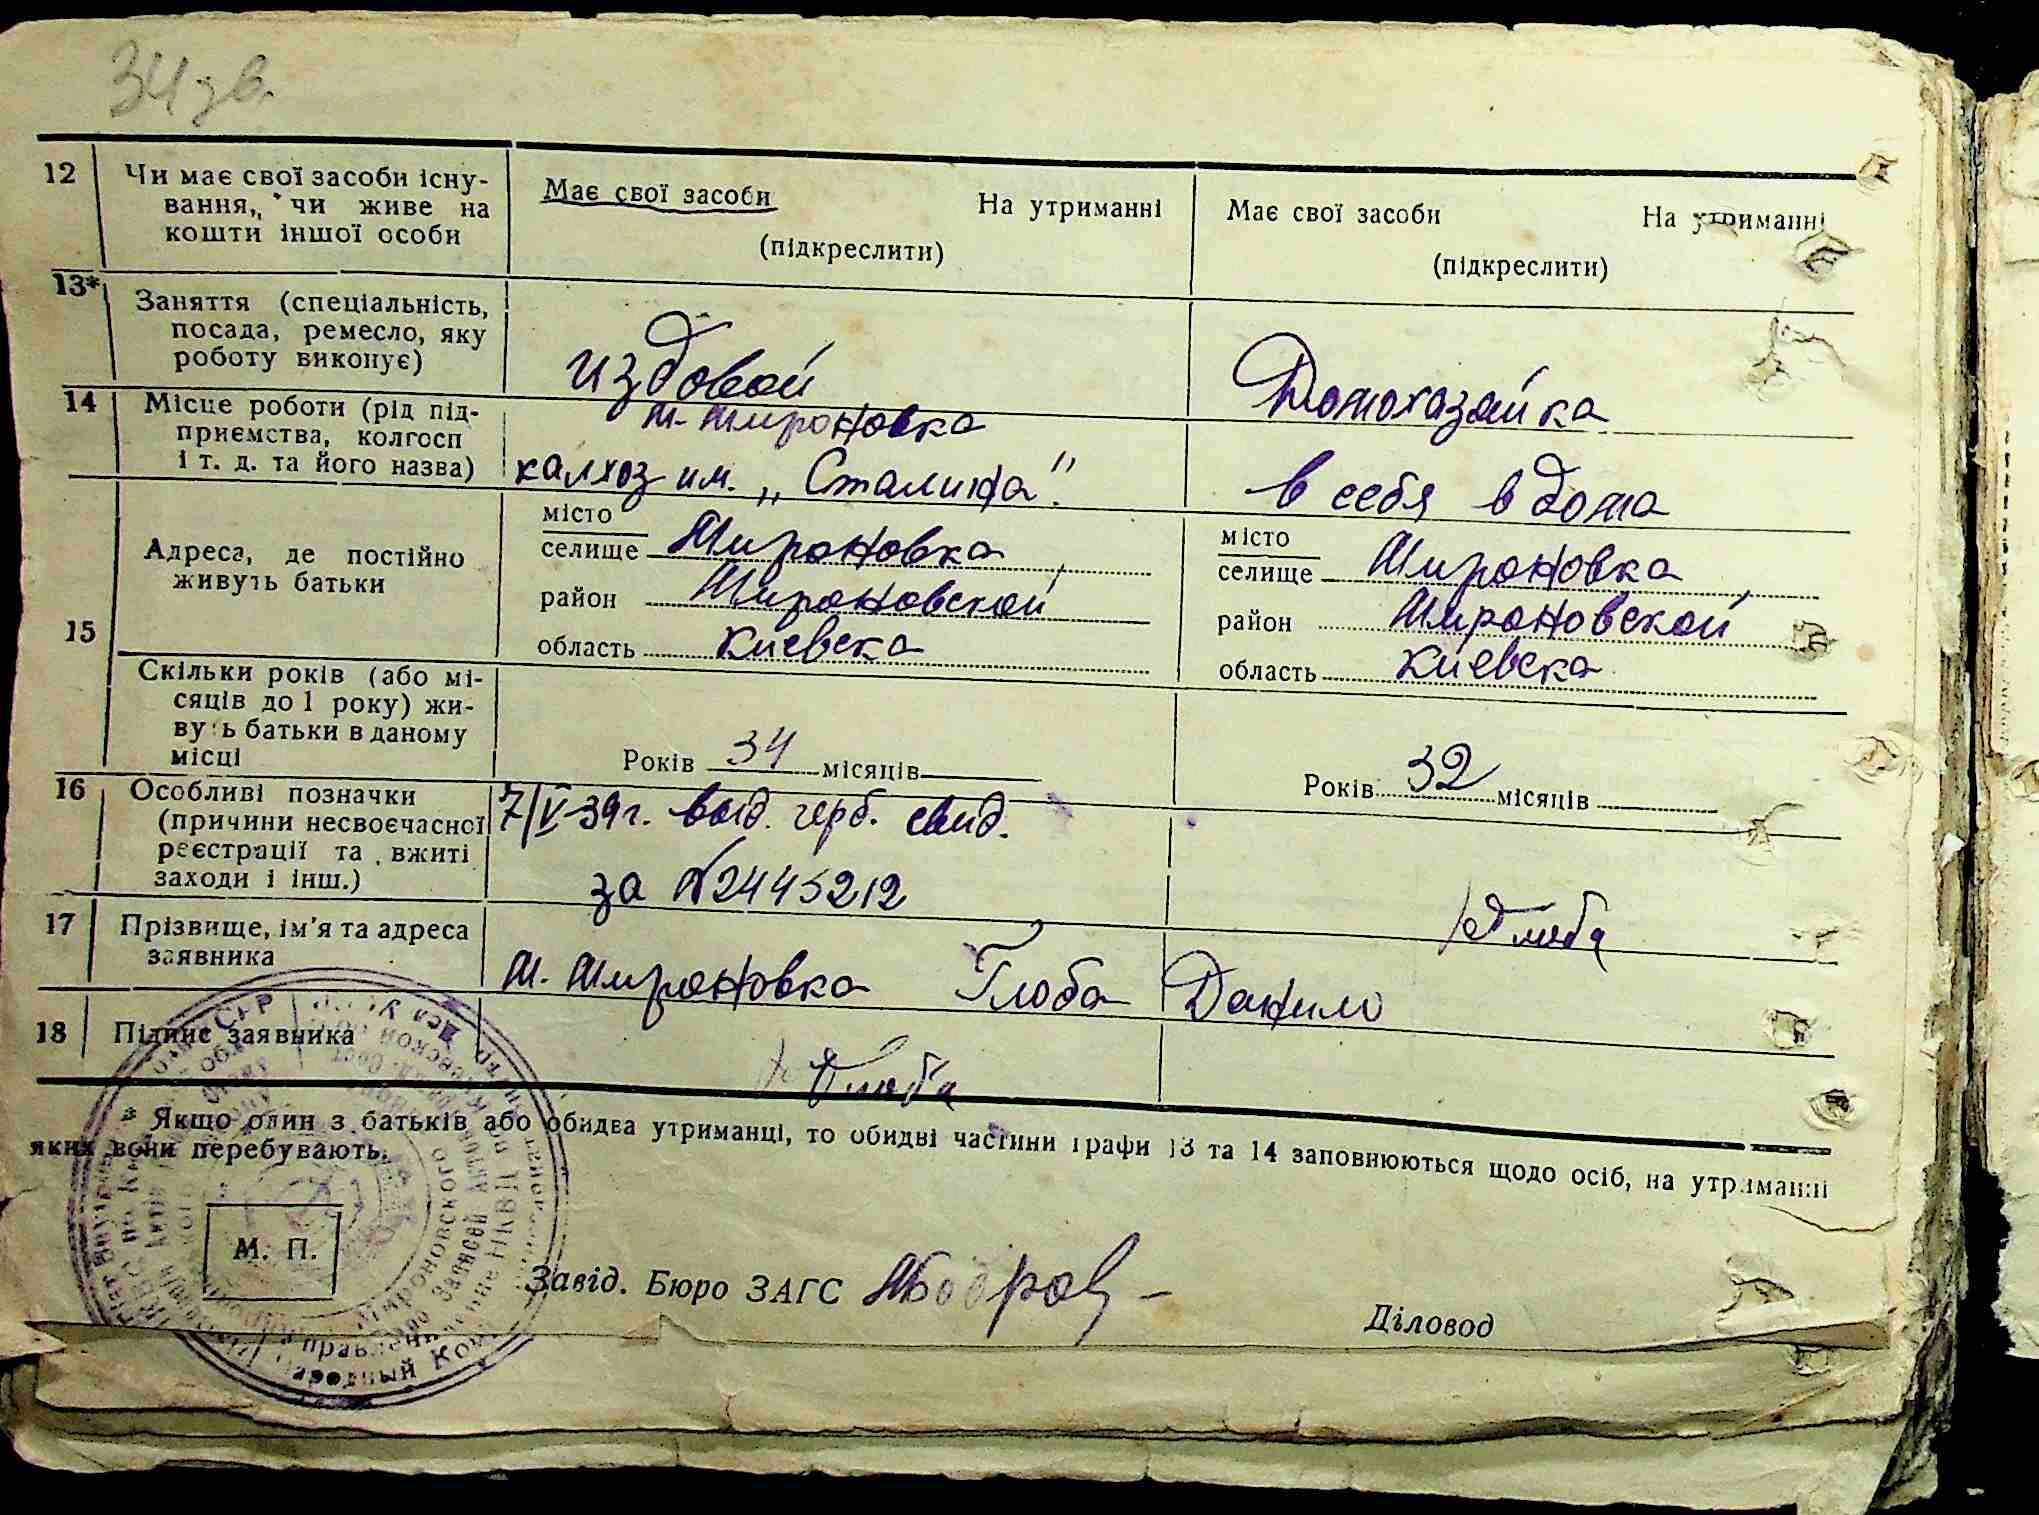 34 зв.
12 Чи має свої засоби існу-
вання, чи живе на
кошти іншої особи
Має свої засоби На утриманні
(підкреслити)
Має свої засоби На утриманні
(підкреслити)
13* Заняття (спеціальність,
посада, ремесло, яку
роботу виконує)
издовой
Домохазяйка
14 Місце роботи (рід під-
приємства, колгосп
і т. д. та його назва)
м. Мироновка
калхоз им. „Сталина".
в себя в дома
15 Адреса, де постійно
живуть батьки
місто
селище Мироновка
район Мироновской
область Киевска
місто
селище Мироновка
район Мироновской
область Киевска
Скільки років (або мі-
сяців до 1 року) жи-
вуть батьки в даному
місці
Років 34 місяців
Років 32 місяців
16 Особливі позначки
(причини несвоєчасної
реєстрації та вжиті
заходи і інш.)
7/V-39г. выд. герб. свид.
за №2445212
Глоба
17 Прізвище, ім'я та адреса
заявника
м. Мироновка Глоба Данило
18 Підпис заявника
Глоба
* Якщо один з батьків або обидва утриманці, то обидві частини графи 13 та 14 заповнюються щодо осіб, на утриманні
яких вони перебувають.
М. П.
Завід. Бюро ЗАГС
Діловод